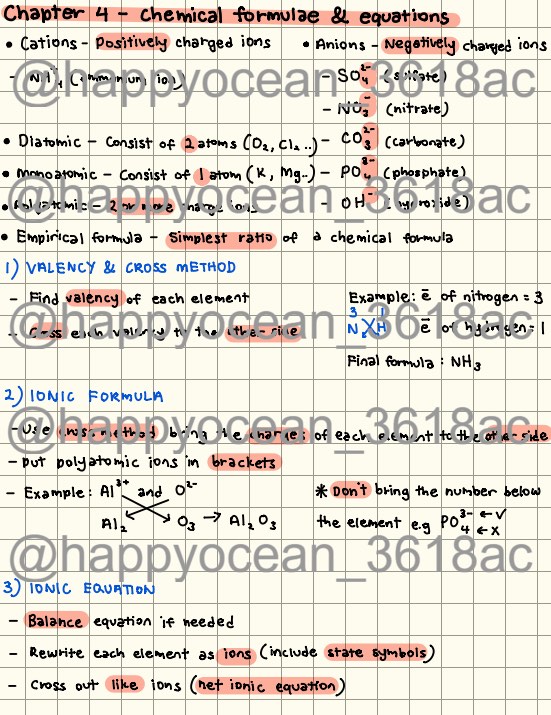 Chapter 4 - Chemical formulae & equations
• Cations - Positively charged ions
• Anions - Negatively charged ions
- NH⁺₄ (ammonium ion)
- SO₄²⁻ (sulfate)
- NO₃⁻ (nitrate)
• Diatomic - Consist of 2 atoms (O₂, Cl₂..)
- CO₃²⁻ (carbonate)
• Monoatomic - Consist of 1 atom (K, Mg..)
- PO₄³⁻ (phosphate)
• Polyatomic - 2 or more charge ions
- OH⁻ (hydroxide)
• Empirical formula - Simplest ratio of a chemical formula
1) VALENCY & CROSS METHOD
- Find valency of each element
- Cross each valency to the other side
Example: ē of nitrogen = 3
3 1
N H ē of hydrogen = 1
Final formula : NH₃
2) IONIC FORMULA
- Use cross method bring the charges of each element to the other side
- put polyatomic ions in brackets
- Example: Al³⁺ and O²⁻
Al₂ O₃ → Al₂O₃
* Don't bring the number below
the element e.g PO₄³⁻ ← √
← x
3) IONIC EQUATION
- Balance equation if needed
- Rewrite each element as ions (include state symbols)
- Cross out like ions (net ionic equation)
@happyocean_3618ac
@happyocean_3618ac
@happyocean_3618ac
@happyocean_3618ac
@happyocean_3618ac